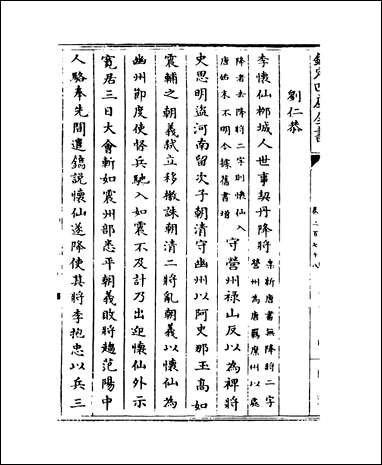 欽定四庫全書
卷二百七十八
劉仁恭
李懷仙柳城人世事契丹降將
案新唐書無降將二字
營州為唐羈縻州以處
降者去降將二字則懷仙入
唐始末不明今據舊書增
守營州祿山反以為裨將
史思明盜河南留次子朝清守幽州以阿史那玉高如
震輔之朝義弒立移檄誅朝清二將亂朝義以懷仙為
幽州節度使督兵馳入如震不及計乃出迎懷仙外示
寛居三日大會斬如震州部悉平朝義敗將趨范陽中
人駱奉先間遣鐫說懷仙遂降使其將李抱忠以兵三